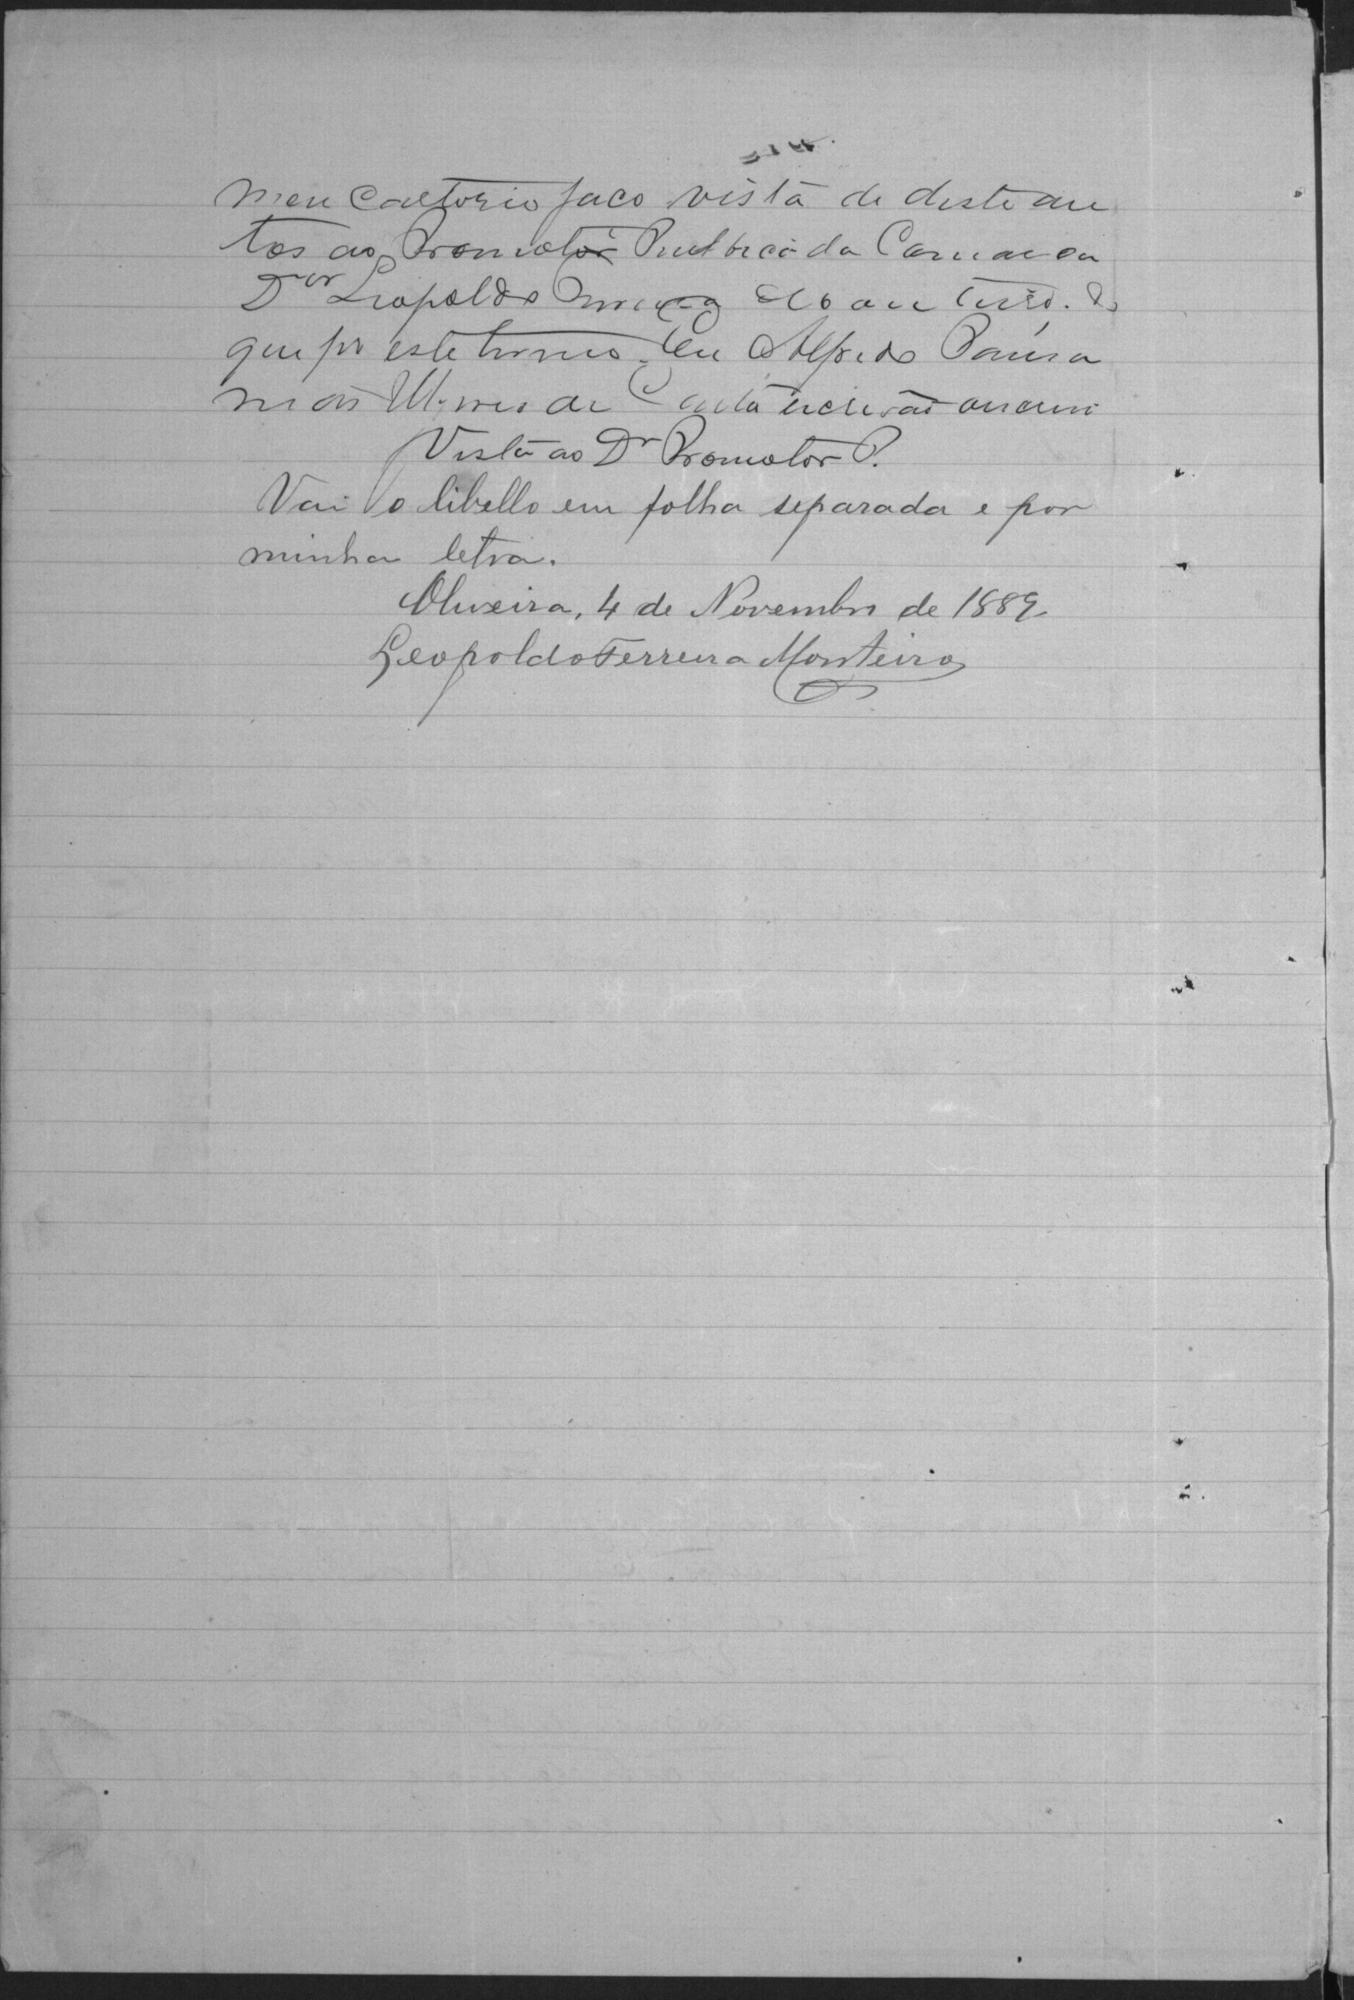 meu Cartorio faco vista de deste au
tos ao Promotor Publico da Comarca
Dor Leopoldo Monteiro. Do
que fis este termo. Eu Alfredo
de Costa escrivão
Vista ao Dr Promotor P.
Vai o libello em folha separada e por
minha letra.
Oliveira, 4 de Novembro de 1889
Leopoldo Ferreira Monteiro